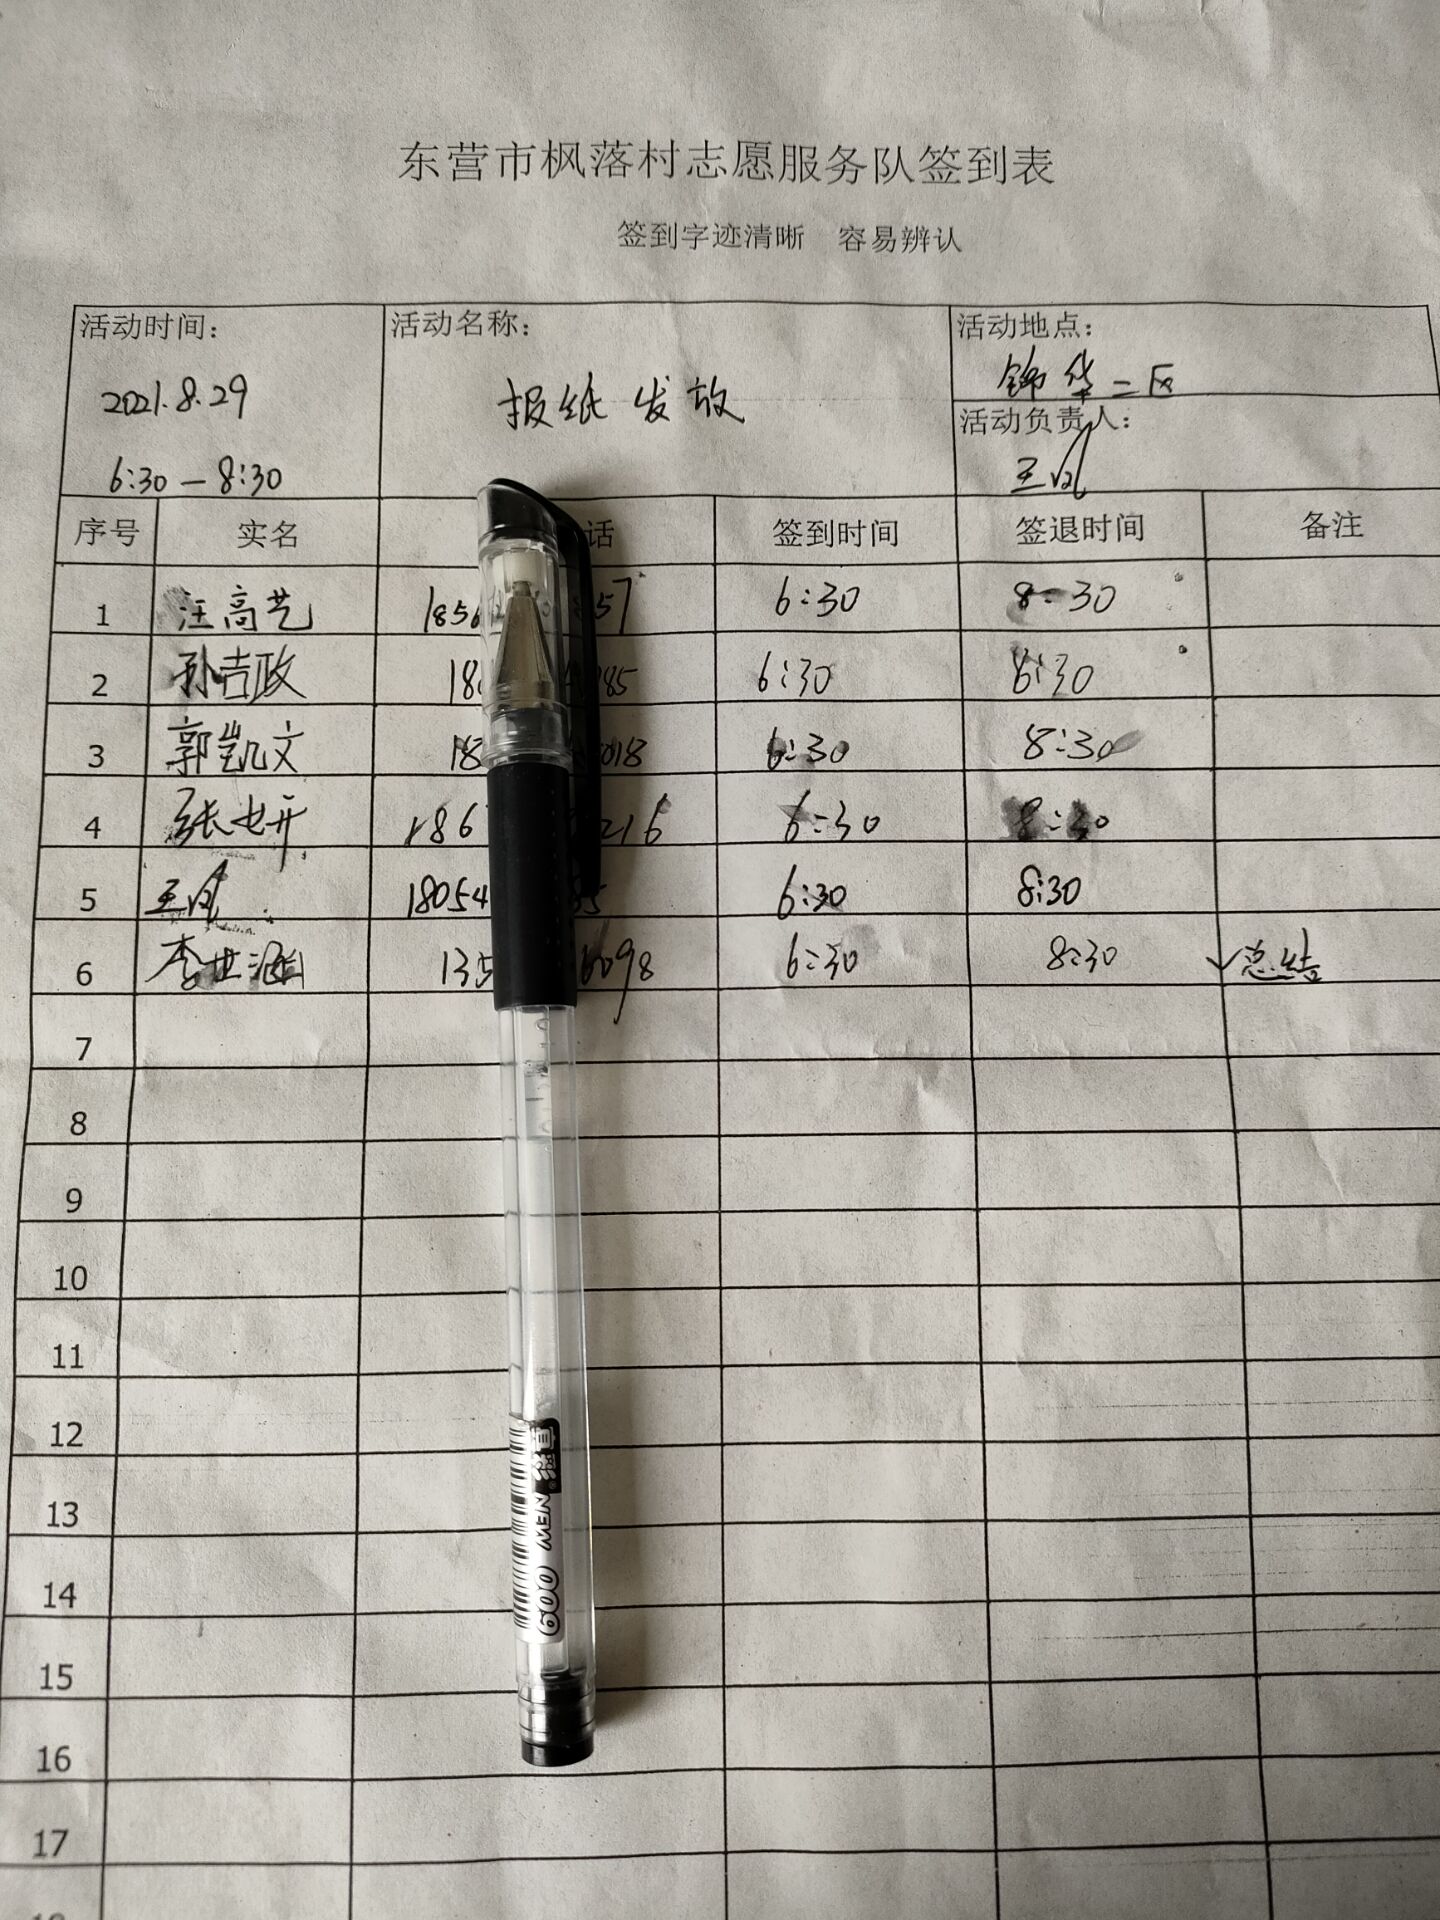 东营市枫落村志愿服务队签到表
签到字迹清晰 容易辨认
活动时间： 活动名称： 活动地点：
2021.8.29 报纸发放 锦华二区
活动负责人：
6:30—8:30 王凤
序号 实名 话 签到时间 签退时间 备注
1 汪高艺 185 57 6:30 8:30
2 孙吉政 18 85 6:30 8:30
3 郭凯文 18 018 6:30 8:30
4 张世开 186 216 6:30 8:30
5 王凤 18054 6:30 8:30
6 李世涵 135 6098 6:30 8:30 √总结
7
8
9
10
11
12
13
14
15
16
17
真彩 NEW 009